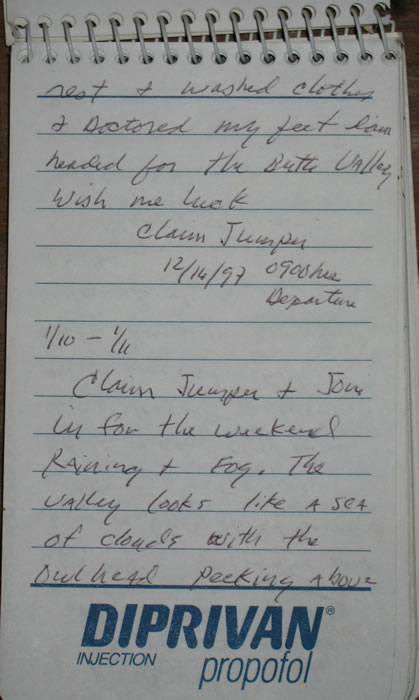 rest & washed clothes
& Doctored my feet
headed for the Butte Valley
Wish me luck
Claim Jumper
12/14/97 0900 hrs
Departure
1/10 - 1/11
Claim Jumper & Tom
in for the weekend
Raining & Fog. The
valley looks like A SEA
of clouds with the
Owlhead Peeking Above
DIPRIVAN®
INJECTION propofol